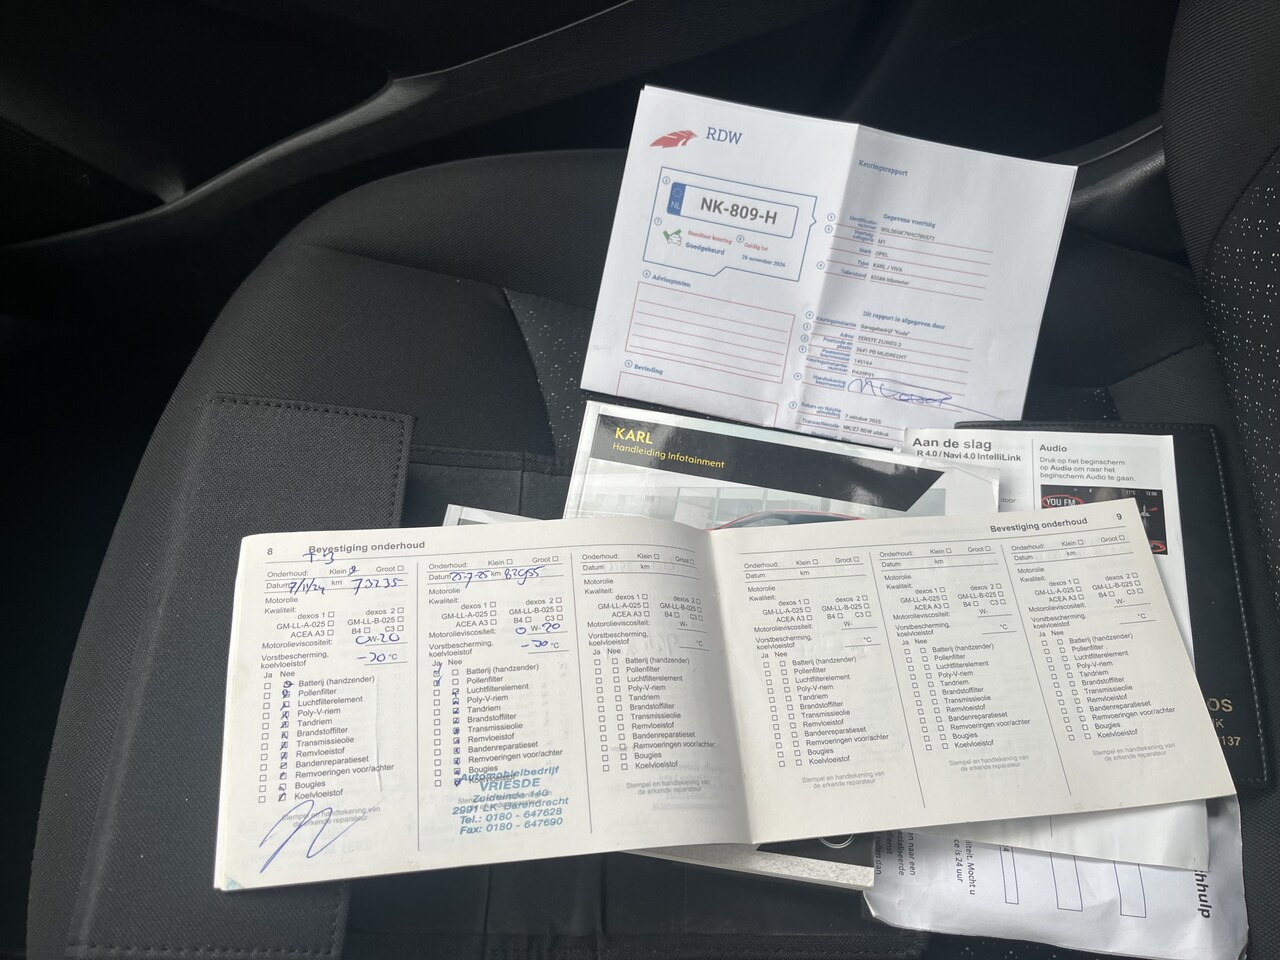 RDW
Keuringsrapport
NL
NK-809-H
Goedgekeurd
Geldig tot
26 november 2026
Adviespunten
Bevinding
Gegevens voertuig
M1
Merk OPEL
Type KARL / VIVA
Tellerstand
kilometer
Dit rapport is afgegeven door
Garagebedrijf "Kudo"
Adres EERSTE ZIJWEG 2
MIJDRECHT
7 oktober 2025
Transactiecode
KARL
Handleiding Infotainment
Aan de slag
R 4.0 / Navi 4.0 IntelliLink
Audio
Druk op het beginscherm
op Audio om naar het
beginscherm Audio te gaan.
YOU FM
8
Bevestiging onderhoud
Onderhoud: Klein Groot
Datum 7/11/24 km 73235
Motorolie
Kwaliteit:
dexos 1 dexos 2
GM-LL-A-025 GM-LL-B-025
ACEA A3 B4 C3
Motorolieviscositeit: 0W-20
Vorstbescherming,
koelvloeistof -30 °C
Ja Nee
Batterij (handzender)
Pollenfilter
Luchtfilterelement
Poly-V-riem
Tandriem
Brandstoffilter
Transmissieolie
Remvloeistof
Bandenreparatieset
Remvoeringen voor/achter
Bougies
Koelvloeistof
Stempel en handtekening van
de erkende reparateur
Onderhoud: Klein Groot
Datum 25-7-25 km 82955
Motorolie
Kwaliteit:
dexos 1 dexos 2
GM-LL-A-025 GM-LL-B-025
ACEA A3 B4 C3
Motorolieviscositeit: 0W-20
Vorstbescherming,
koelvloeistof -30 °C
Ja Nee
Batterij (handzender)
Pollenfilter
Luchtfilterelement
Poly-V-riem
Tandriem
Brandstoffilter
Transmissieolie
Remvloeistof
Bandenreparatieset
Remvoeringen voor/achter
Bougies
Koelvloeistof
Automobielbedrijf
VRIESDE
Zuideinde 140
2991 LK Barendrecht
Tel.: 0180 - 647628
Fax: 0180 - 647690
Onderhoud: Klein Groot
Datum km
Motorolie
Kwaliteit:
dexos 1 dexos 2
GM-LL-A-025 GM-LL-B-025
ACEA A3 B4 C3
Motorolieviscositeit: W-
Vorstbescherming,
koelvloeistof °C
Ja Nee
Batterij (handzender)
Pollenfilter
Luchtfilterelement
Poly-V-riem
Tandriem
Brandstoffilter
Transmissieolie
Remvloeistof
Bandenreparatieset
Remvoeringen voor/achter
Bougies
Koelvloeistof
Stempel en handtekening van
de erkende reparateur
Bevestiging onderhoud
9
Onderhoud: Klein Groot
Datum km
Motorolie
Kwaliteit:
dexos 1 dexos 2
GM-LL-A-025 GM-LL-B-025
ACEA A3 B4 C3
Motorolieviscositeit: W-
Vorstbescherming,
koelvloeistof °C
Ja Nee
Batterij (handzender)
Pollenfilter
Luchtfilterelement
Poly-V-riem
Tandriem
Brandstoffilter
Transmissieolie
Remvloeistof
Bandenreparatieset
Remvoeringen voor/achter
Bougies
Koelvloeistof
Stempel en handtekening van
de erkende reparateur
Onderhoud: Klein Groot
Datum km
Motorolie
Kwaliteit:
dexos 1 dexos 2
GM-LL-A-025 GM-LL-B-025
ACEA A3 B4 C3
Motorolieviscositeit: W-
Vorstbescherming,
koelvloeistof °C
Ja Nee
Batterij (handzender)
Pollenfilter
Luchtfilterelement
Poly-V-riem
Tandriem
Brandstoffilter
Transmissieolie
Remvloeistof
Bandenreparatieset
Remvoeringen voor/achter
Bougies
Koelvloeistof
Stempel en handtekening van
de erkende reparateur
Onderhoud: Klein Groot
Datum km
Motorolie
Kwaliteit:
dexos 1 dexos 2
GM-LL-A-025 GM-LL-B-025
ACEA A3 B4 C3
Motorolieviscositeit: W-
Vorstbescherming,
koelvloeistof °C
Ja Nee
Batterij (handzender)
Pollenfilter
Luchtfilterelement
Poly-V-riem
Tandriem
Brandstoffilter
Transmissieolie
Remvloeistof
Bandenreparatieset
Remvoeringen voor/achter
Bougies
Koelvloeistof
Stempel en handtekening van
de erkende reparateur
OS
137
hhulp